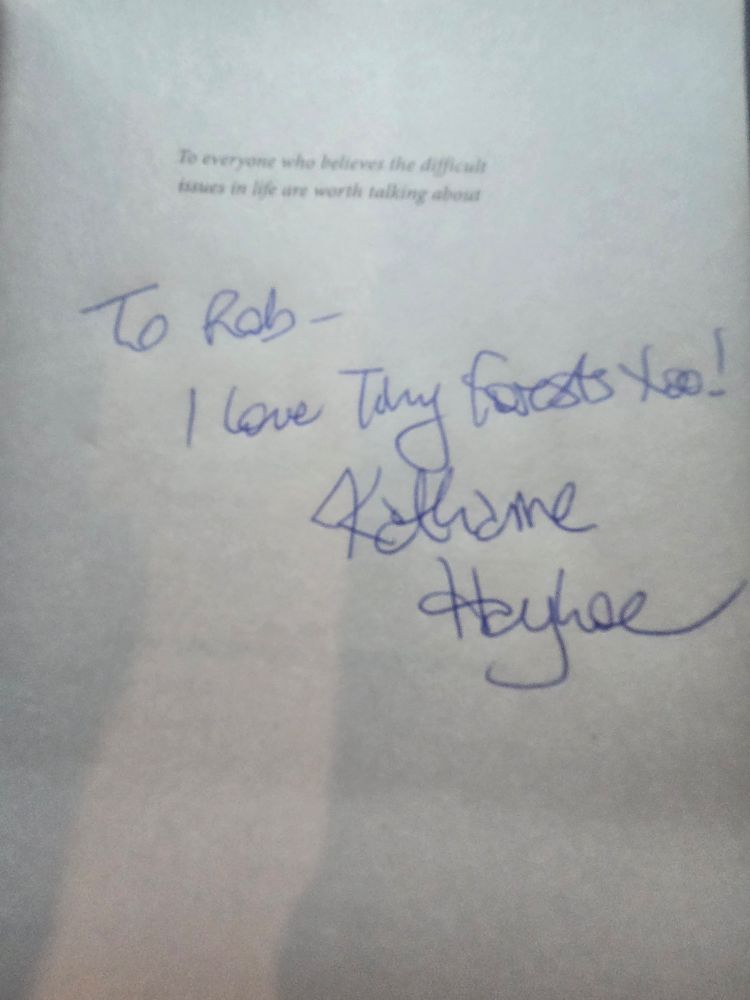 To everyone who believes the difficult
issues in life are worth talking about
To Rob-
I love Tiny Forests too!
Katharine
Hayhoe